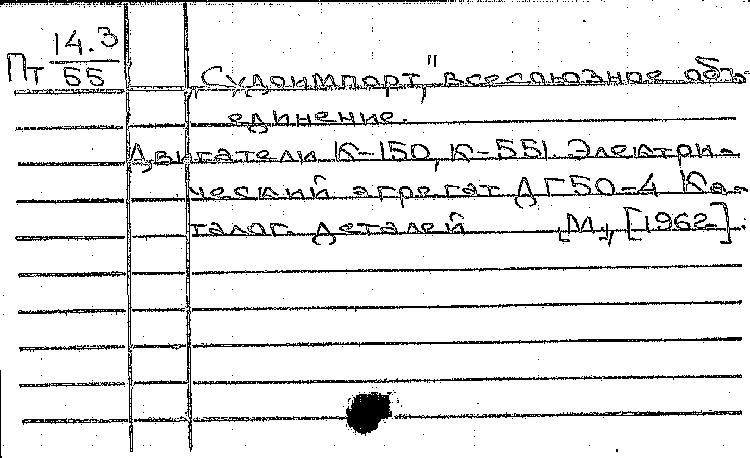 Пт 14.3/55
„Судоимпорт," всесоюзное объ-
единение.
Двигатели К-150, К-551. Электри-
ческий агрегат ДГ50-4 Ка-
талог деталей [М., [1962].